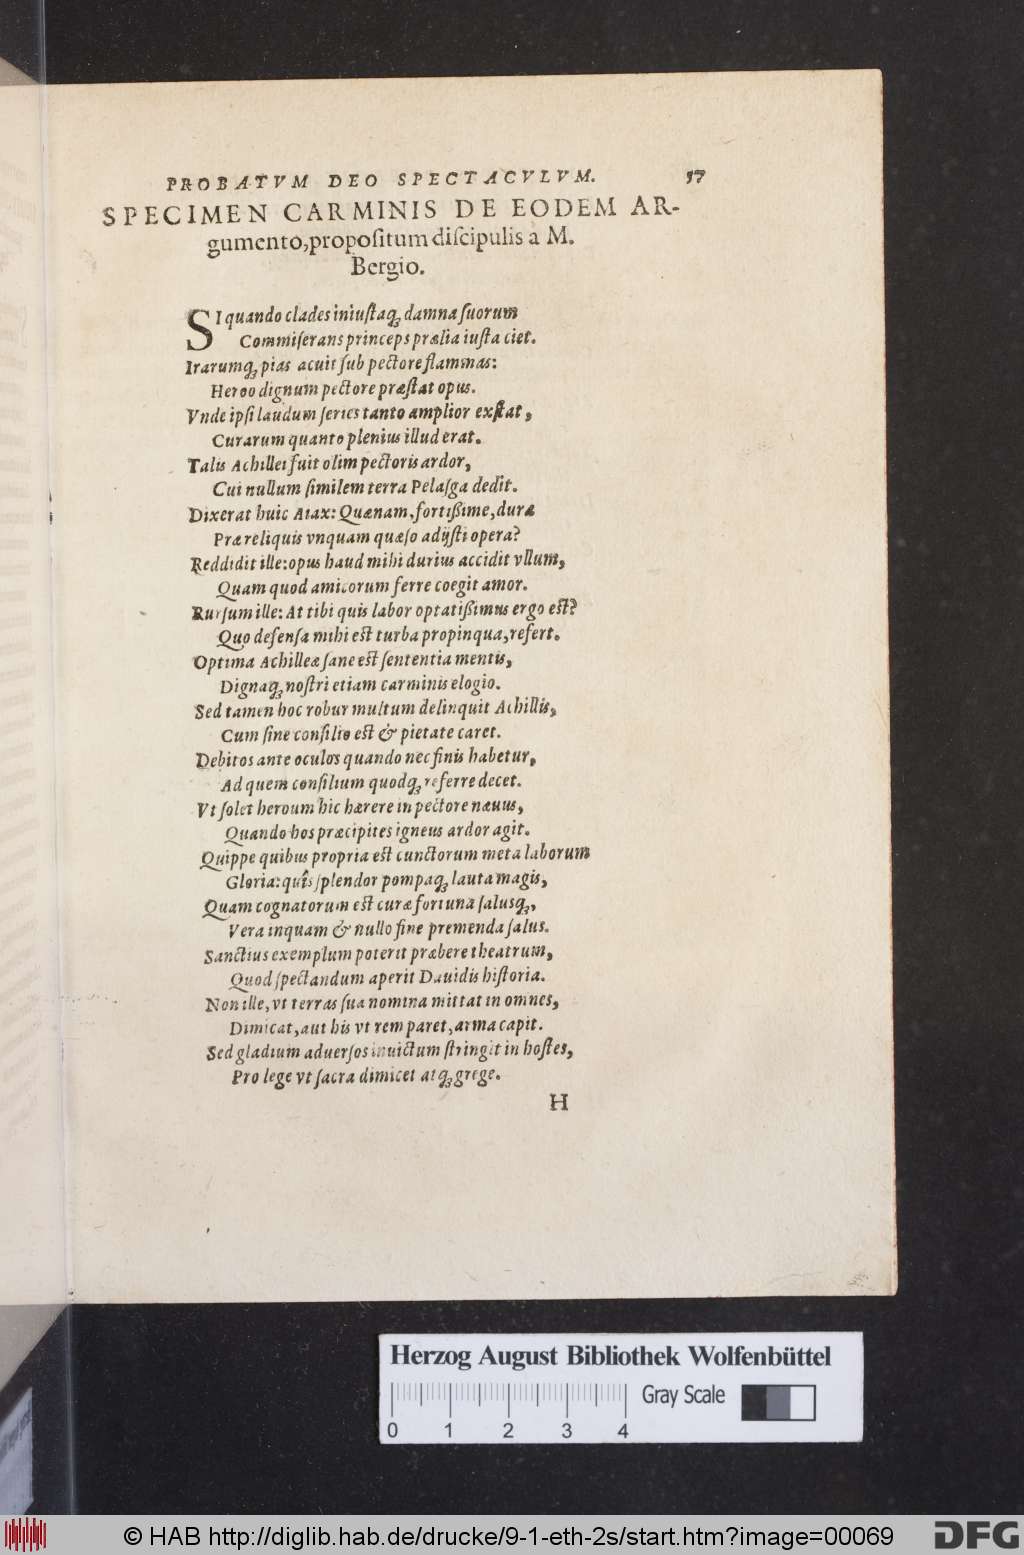 PROBATVM DEO SPECTACVLVM. 57
SPECIMEN CARMINIS DE EODEM AR-
gumento, propoſitum diſcipulis a M.
Bergio.
SI quando clades iniuſtaq́; damna ſuorum
Commiſerans princeps prælia iuſta ciet.
Irarumq́; pias acuit ſub pectore flammas:
Heroo dignum pectore præſtat opus.
Vnde ipſi laudum ſeries tanto amplior exſtat,
Curarum quanto plenius illud erat.
Talis Achillei fuit olim pectoris ardor,
Cui nullum ſimilem terra Pelaſga dedit.
Dixerat huic Aiax: Quænam, fortißime, duræ
Præ reliquis vnquam quæſo adijſti opera?
Reddidit ille: opus haud mihi durius accidit vllum,
Quam quod amicorum ferre coegit amor.
Rurſum ille: At tibi quis labor optatißimus ergo eſt?
Quo defenſa mihi eſt turba propinqua, refert.
Optima Achilleæ ſane eſt ſententia mentis,
Dignaq́; noſtri etiam carminis elogio.
Sed tamen hoc robur multum delinquit Achillis,
Cum ſine conſilio eſt & pietate caret.
Debitos ante oculos quando nec finis habetur,
Ad quem conſilium quodq́; referre decet.
Vt ſolet heroum hic hærere in pectore næuus,
Quando hos præcipites igneus ardor agit.
Quippe quibus propria eſt cunctorum meta laborum
Gloria: quîs ſplendor pompaq́; lauta magis,
Quam cognatorum eſt curæ fortuna ſalusq́;,
Vera inquam & nullo fine premenda ſalus.
Sanctius exemplum poterit præbere theatrum,
Quod ſpectandum aperit Dauidis hiſtoria.
Non ille, vt terras ſua nomina mittat in omnes,
Dimicat, aut his vt rem paret, arma capit.
Sed gladium aduerſos inuictum ſtringit in hoſtes,
Pro lege vt ſacra dimicet atq́; grege.
H
Herzog August Bibliothek Wolfenbüttel
Gray Scale
0 1 2 3 4
© HAB http://diglib.hab.de/drucke/9-1-eth-2s/start.htm?image=00069
DFG